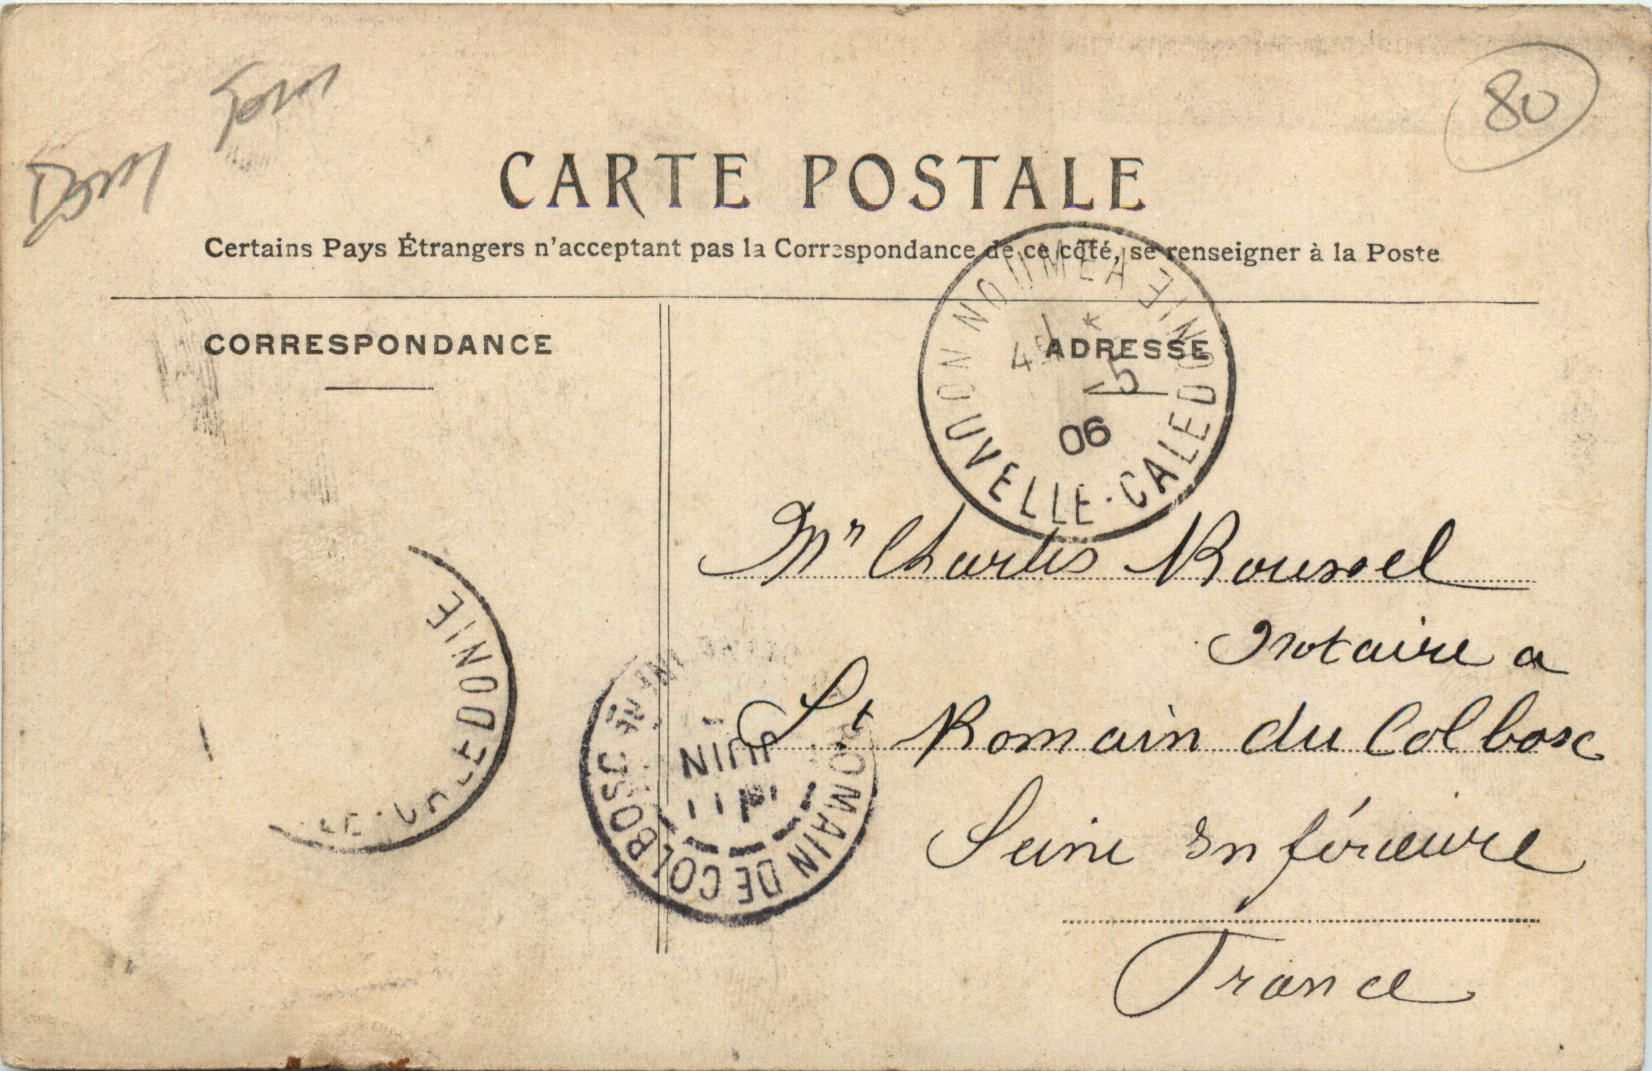 Dom Tom
80
CARTE POSTALE
Certains Pays Étrangers n'acceptant pas la Correspondance de ce côté, se renseigner à la Poste
CORRESPONDANCE
ADRESSE
NOUMEA
NOUVELLE-CALEDONIE
5
06
Mr Charles Roussel
Notaire a
St Romain du Colbosc
Seine Inférieure
France
CALEDONIE
ST ROMAIN DE COLBOSC
JUIN